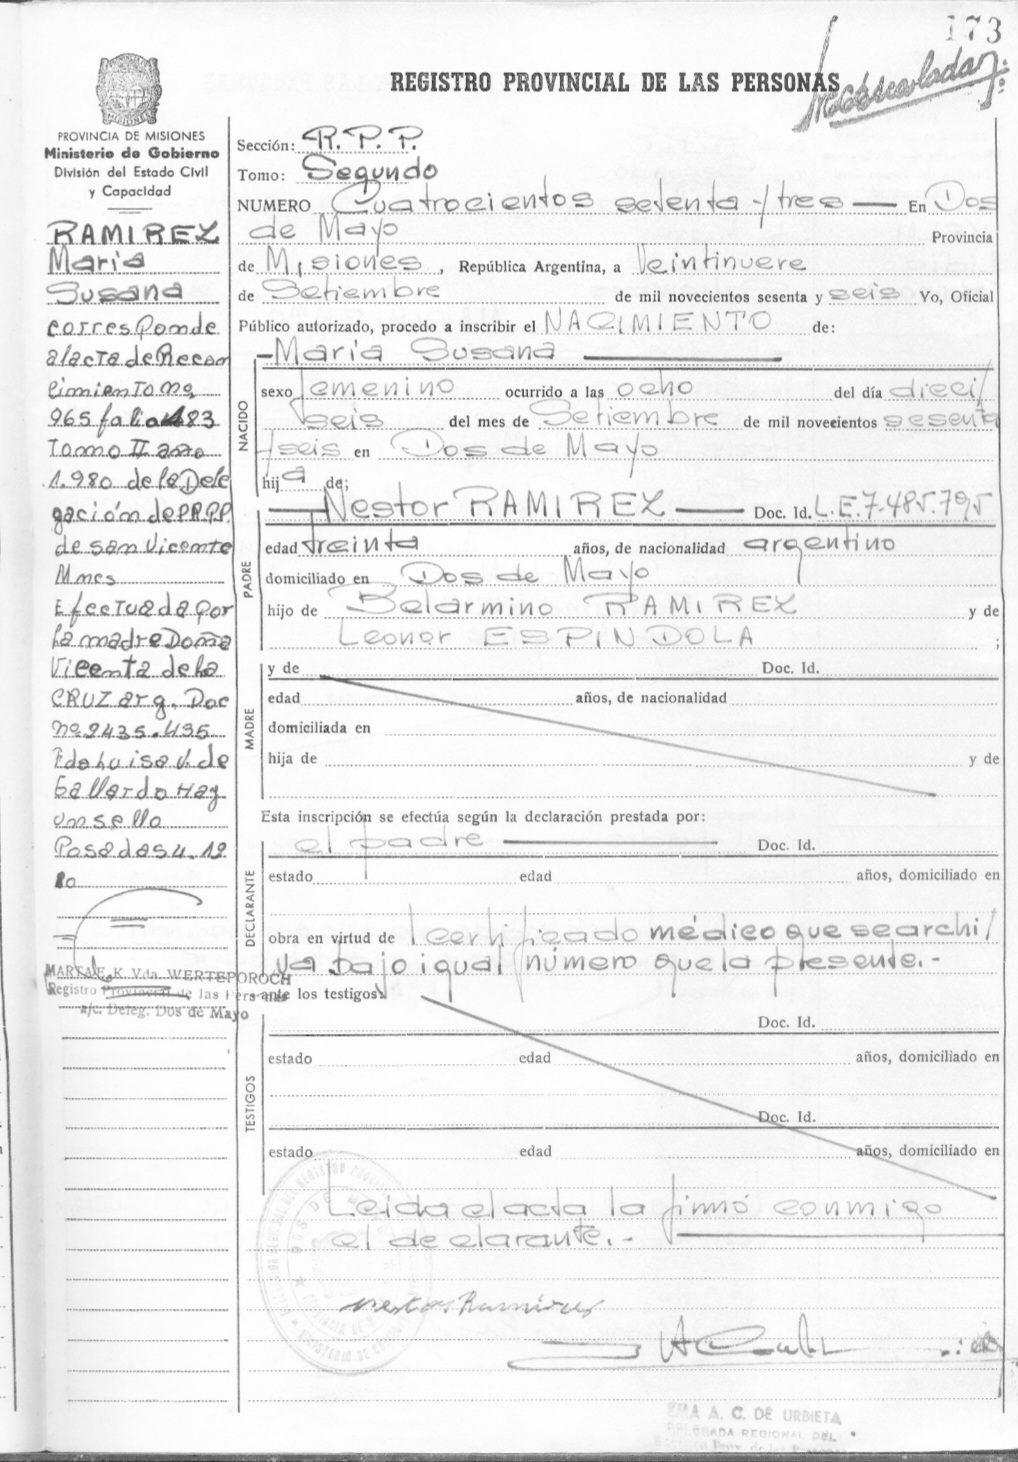 173
REGISTRO PROVINCIAL DE LAS PERSONAS
PROVINCIA DE MISIONES
Ministerio de Gobierno
División del Estado Civil
y Capacidad
RAMIREZ
María
Susana
corresponde
al acta de Recon
cimiento nº
965 folio 483
Tomo II año
1.980 de la Dele
gación de R.P.P.
de San Vicente
Mnes
Efectuada por
la madre Doña
Vicenta de la
CRUZ arg. Doc
nº 2435.435
Fdo Luisa V. de
Gallardo Hay
un sello
Posadas 4.12
80
MARTA E. K. Vda. WERTEPOROCH
Registro Provincial de las Personas
a/c. Deleg. Dos de Mayo
Sección: R.P.P.
Tomo: Segundo
NUMERO Cuatrocientos setenta y tres En Dos
de Mayo Provincia
de Misiones, República Argentina, a Veintinueve
de Setiembre de mil novecientos sesenta y seis Yo, Oficial
Público autorizado, procedo a inscribir el NACIMIENTO de:
María Susana
NACIDO
sexo femenino ocurrido a las ocho del día dieci/
seis del mes de Setiembre de mil novecientos sesenta
y seis en Dos de Mayo
hija de;
PADRE
Nestor RAMIREZ Doc. Id. L.E.7.485.795
edad treinta años, de nacionalidad argentino
domiciliado en Dos de Mayo
hijo de Belarmino RAMIREZ y de
Leonor ESPINDOLA ;
MADRE
y de Doc. Id.
edad años, de nacionalidad
domiciliada en
hija de y de
Esta inscripción se efectúa según la declaración prestada por:
DECLARANTE
el padre Doc. Id.
estado edad años, domiciliado en
obra en virtud de certificado médico que se archi/
va bajo igual número que la presente.-
ante los testigos:
TESTIGOS
Doc. Id.
estado edad años, domiciliado en
Doc. Id.
estado edad años, domiciliado en
Leida el acta la firmó conmigo
el declarante.-
Nestor Ramirez
A. C. DE URBIETA
DELEGADA REGIONAL DEL